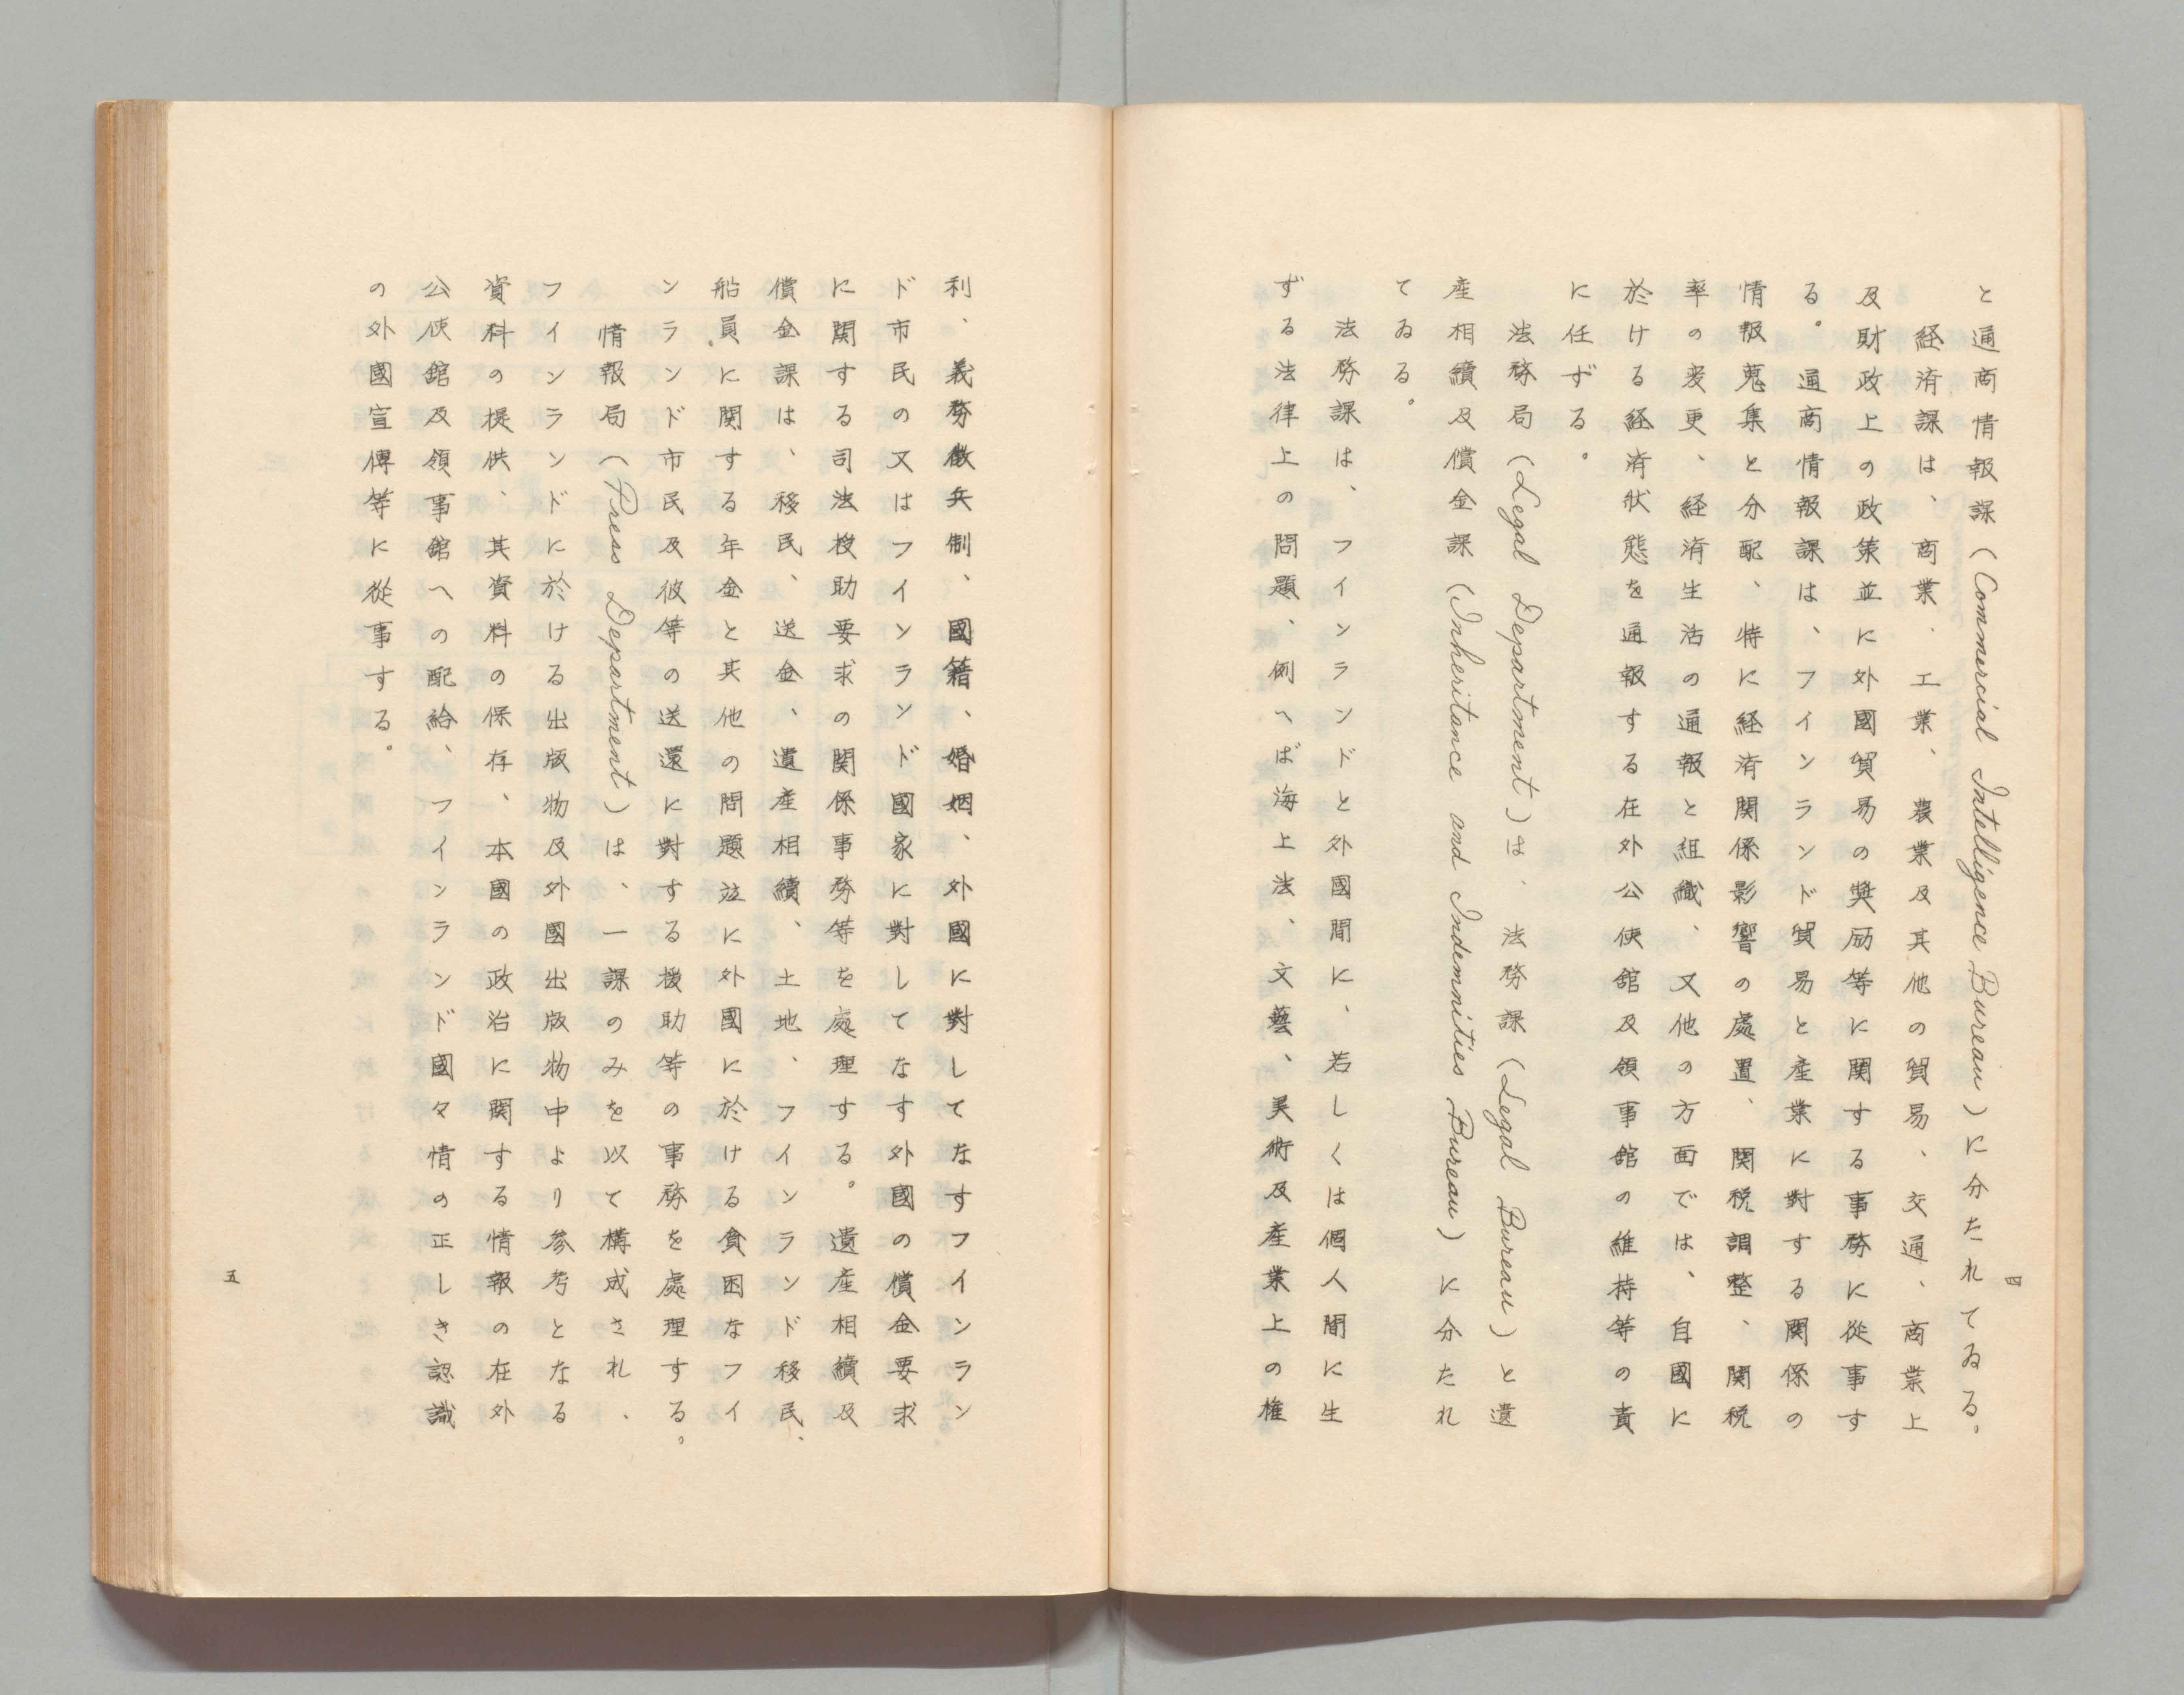 と通商情報課(Commercial Intelligence Bureau)に分たれてゐる。
経済課は、商業、工業、農業及其他の貿易、交通、商業上
及財政上の政策並に外國貿易の奨励等に関する事務に従事す
る。通商情報課は、フインランド貿易と産業に對する関係の
情報蒐集と分配、特に経済関係影響の處置、関税調整、関税
率の変更、経済生活の通報と組織、又他の方面では、自國に
於ける経済状態を通報する在外公使館及領事館の維持等の責
に任ずる。
法務局(Legal Department)は、法務課(Legal Bureau)と遺
産相續及償金課(Inheritance and Indemnities Bureau)に分たれ
てゐる。
法務課は、フインランドと外國間に、若しくは個人間に生
ずる法律上の問題、例へば海上法、文藝、美術及産業上の権
四
利、義務徴兵制、國籍、婚姻、外國に對してなすフインラン
ド市民の又はフインランド國家に對してなす外國の償金要求
に関する司法授助要求の関係事務等を處理する。遺産相續及
償金課は、移民、送金、遺産相續、土地、フインランド移民、
船員に関する年金と其他の問題竝に外國に於ける貧困なフイ
ンランド市民及彼等の送還に對する援助等の事務を處理する。
情報局(Press Department)は、一課のみを以て構成され、
フインランドに於ける出版物及外國出版物中より参考となる
資料の提供、其資料の保存、本國の政治に関する情報の在外
公使館及領事館への配給、フインランド國々情の正しき認識
の外國宣傳等に從事する。
五